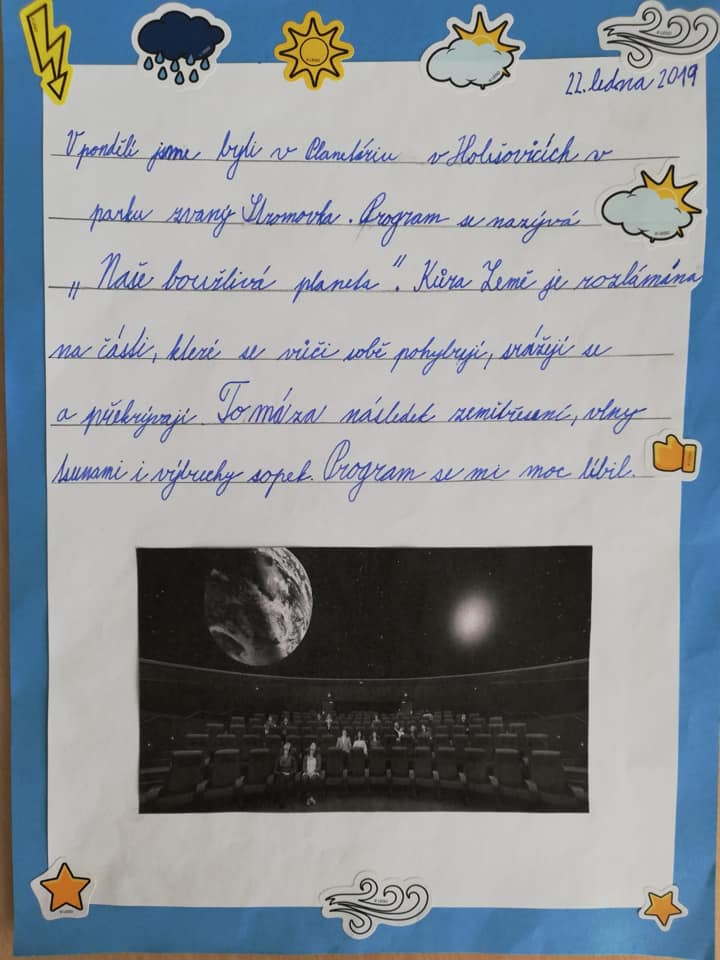 22. ledna 2019
V pondělí jsme byli v Planetáriu v Holešovicích v
parku zvaný Stromovka. Program se nazývá
„Naše bouřlivá planeta“. Kůra Země je rozlámána
na části, které se vůči sobě pohybují, srážejí se
a překrývají. To má za následek zemětřesení, vlny
tsunami i výbuchy sopek. Program se mi moc líbil.